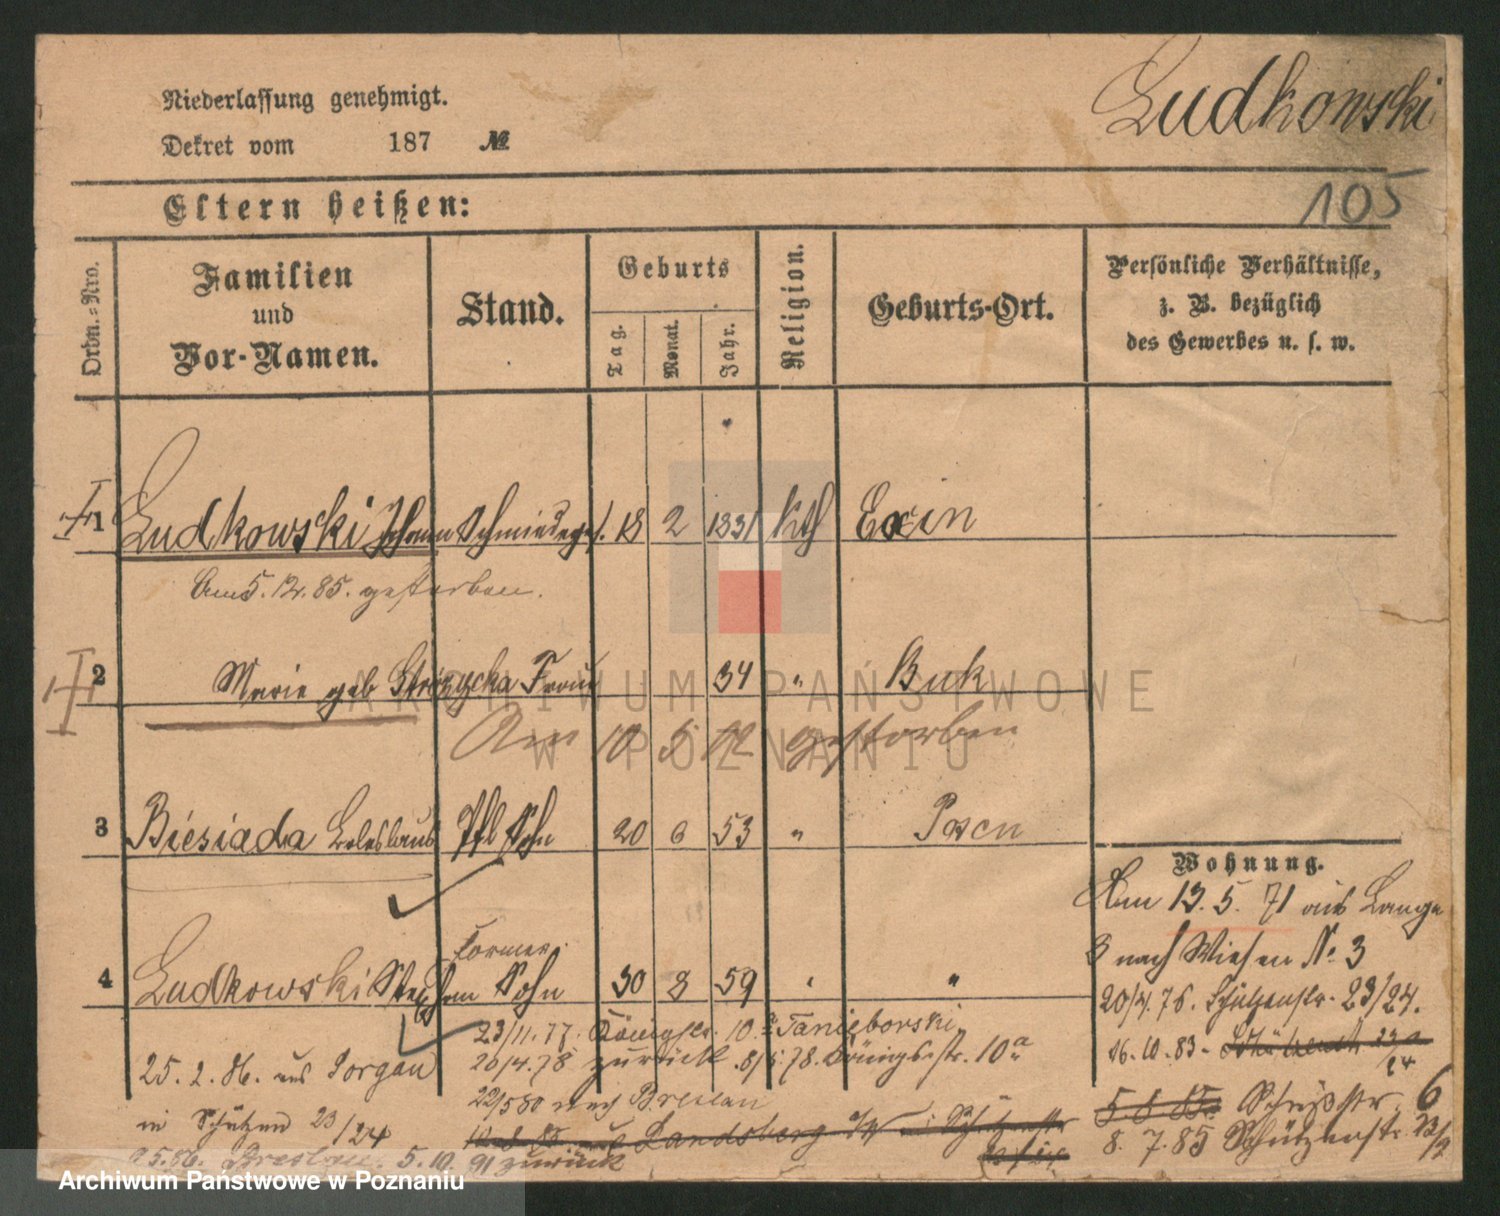 Ludkowski
Niederlassung genehmigt.
Dekret vom 187 №
105
Eltern heißen:
Ordn.-Nro. Familien und Vor-Namen. Stand. Geburts Tag. Monat. Jahr. Religion. Geburts-Ort. Persönliche Verhältnisse, z. B. bezüglich des Gewerbes u. s. w.
1 Ludkowski Johann Schmiedeges. 18 2 1831 kth Exin
Am 5.12.85. gestorben.
2 Marie geb Strózycka Frau 34 " Buk
Am 10 5 72 gestorben
3 Biesiada Boleslaus Pfl Sohn 20 6 53 " Posen
Wohnung.
Am 13.5.71 aus Lange
3 nach Wiesen No 3
Former
4 Ludkowski Stephan Sohn 30 8 59 " "
20/4.76. Schützenstr. 23/24.
23/11.77. Königstr. 10.a Tanieborski
16.10.83.
25.2.86. aus Torgau
20/4.78 zurück .8/5.78. Königsstr. 10a
22/5 80 nach Breslau
5.6 85.
in Schützen 23/24
Landsberg
8.7.85 Schützenstr 23/2
Breslau. 5.10.91 zurück
ARCHIWUM PAŃSTWOWE
W POZNANIU
Archiwum Państwowe w Poznaniu